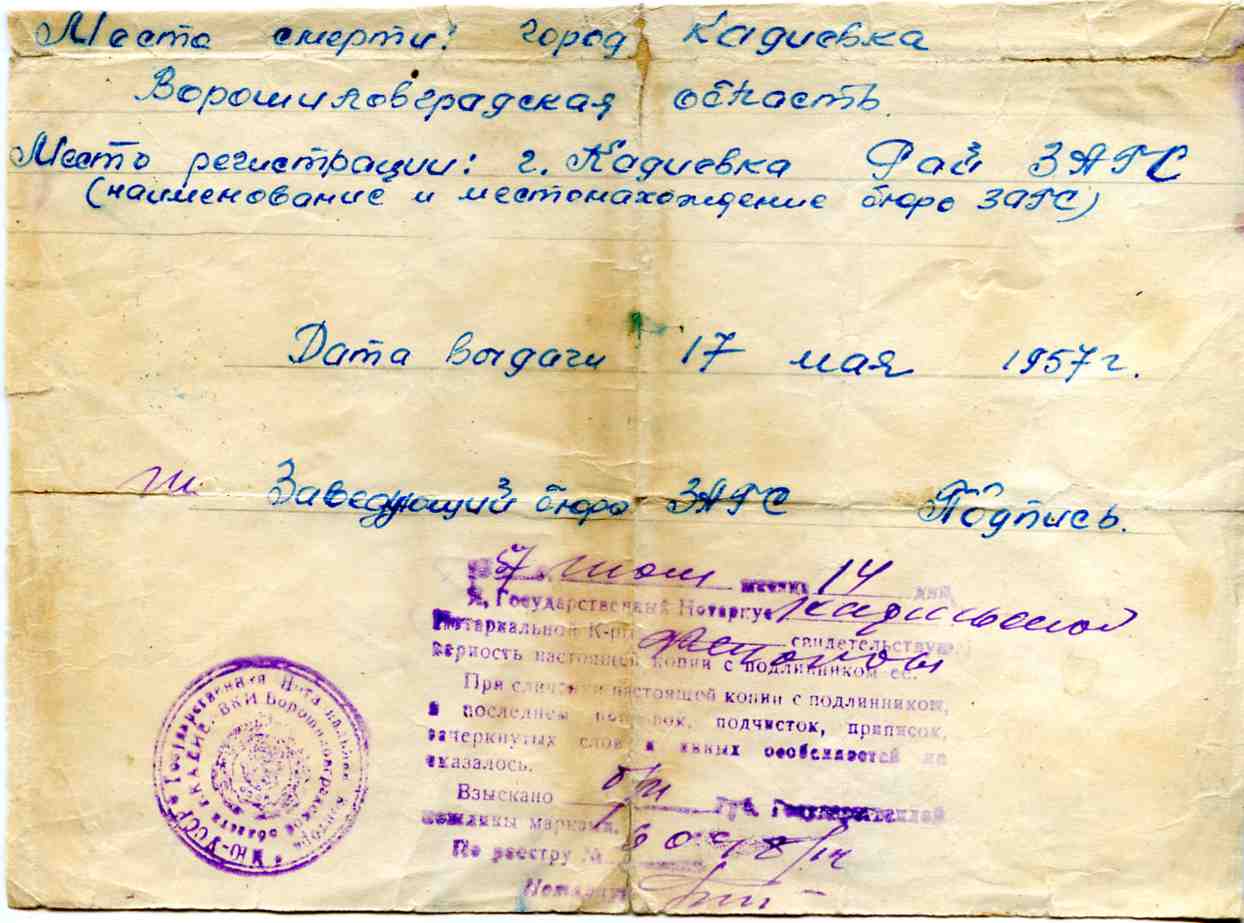 Место смерти: город Кадиевка
Ворошиловградская область
Место регистрации: г. Кадиевка Рай ЗАГС
(наименование и местонахождение бюро ЗАГС)
Дата выдачи 17 мая 1957 г.
Заведующий бюро ЗАГС Подпись.
57 месяца 14 дня
Я, Государственный Нотариус
Нотариальной К-ры свидетельствую
верность настоящей копии с подлинником ее.
При сличении настоящей копии с подлинником,
в последнем поправок, подчисток, приписок,
зачеркнутых слов и явных особенностей не
оказалось.
Взыскано б/п руб. Государственной
пошлины марками.
По реестру №
Нотариус
МЮ-УССР Государственная Нотариальная Контора
г. КАДИЕВКИ Ворошиловградской области